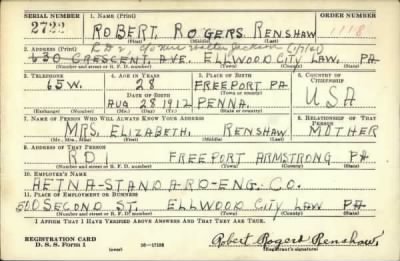 SERIAL NUMBER 1. NAME (Print) ORDER NUMBER
2722 ROBERT, ROGERS RENSHAW 1118
(First) (Middle) (Last)
2. ADDRESS (Print) R.D 2. c/o Mrs Walter Jackson (1/7/41)
630 CRESCENT, AVE. ELLWOOD CITY LAW PA
(Number and street or R. F. D. number) (Town) (County) (State)
3. TELEPHONE 4. AGE IN YEARS 5. PLACE OF BIRTH 6. COUNTRY OF CITIZENSHIP
65W. 28 FREEPORT PA
DATE OF BIRTH (Town or county)
AUG 28 1912 PENNA. USA
(Exchange) (Number) (Mo.) (Day) (Yr.) (State or country)
7. NAME OF PERSON WHO WILL ALWAYS KNOW YOUR ADDRESS 8. RELATIONSHIP OF THAT PERSON
MRS, ELIZABETH, RENSHAW MOTHER
(Mr., Mrs., Miss) (First) (Middle) (Last)
9. ADDRESS OF THAT PERSON
RD 1 FREEPORT ARMSTRONG PA
(Number and street or R. F. D. number) (Town) (County) (State)
10. EMPLOYER'S NAME
AETNA-STANDARD-ENG. CO.
11. PLACE OF EMPLOYMENT OR BUSINESS
500 SECOND ST. ELLWOOD CITY LAW PA
(Number and street or R. F. D. number) (Town) (County) (State)
I AFFIRM THAT I HAVE VERIFIED ABOVE ANSWERS AND THAT THEY ARE TRUE.
REGISTRATION CARD
D. S. S. Form 1 (over) 16—17105 Robert Rogers Renshaw
(Registrant's signature)